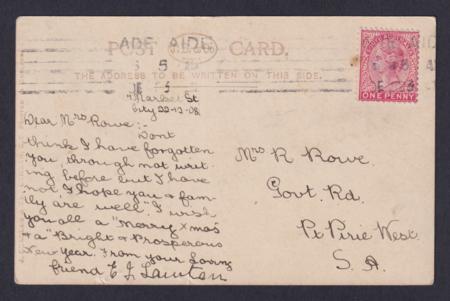 POST CARD.
THE ADDRESS TO BE WRITTEN ON THIS SIDE.
ADE AIDE
5
E 5
ONE PENNY
Market St
City 22-12-08
Dear Mrs Rowe:-
Dont
think I have forgotten
you through not writ-
ing before but I have
not I hope you & fam-
ily are well. I wish
you all a "Merry Xmas
& a "Bright & Prosperous
New Year. From your loving
friend E J Lawton
Mrs R Rowe.
Govt. Rd.
Pt Pirie West.
S. A.